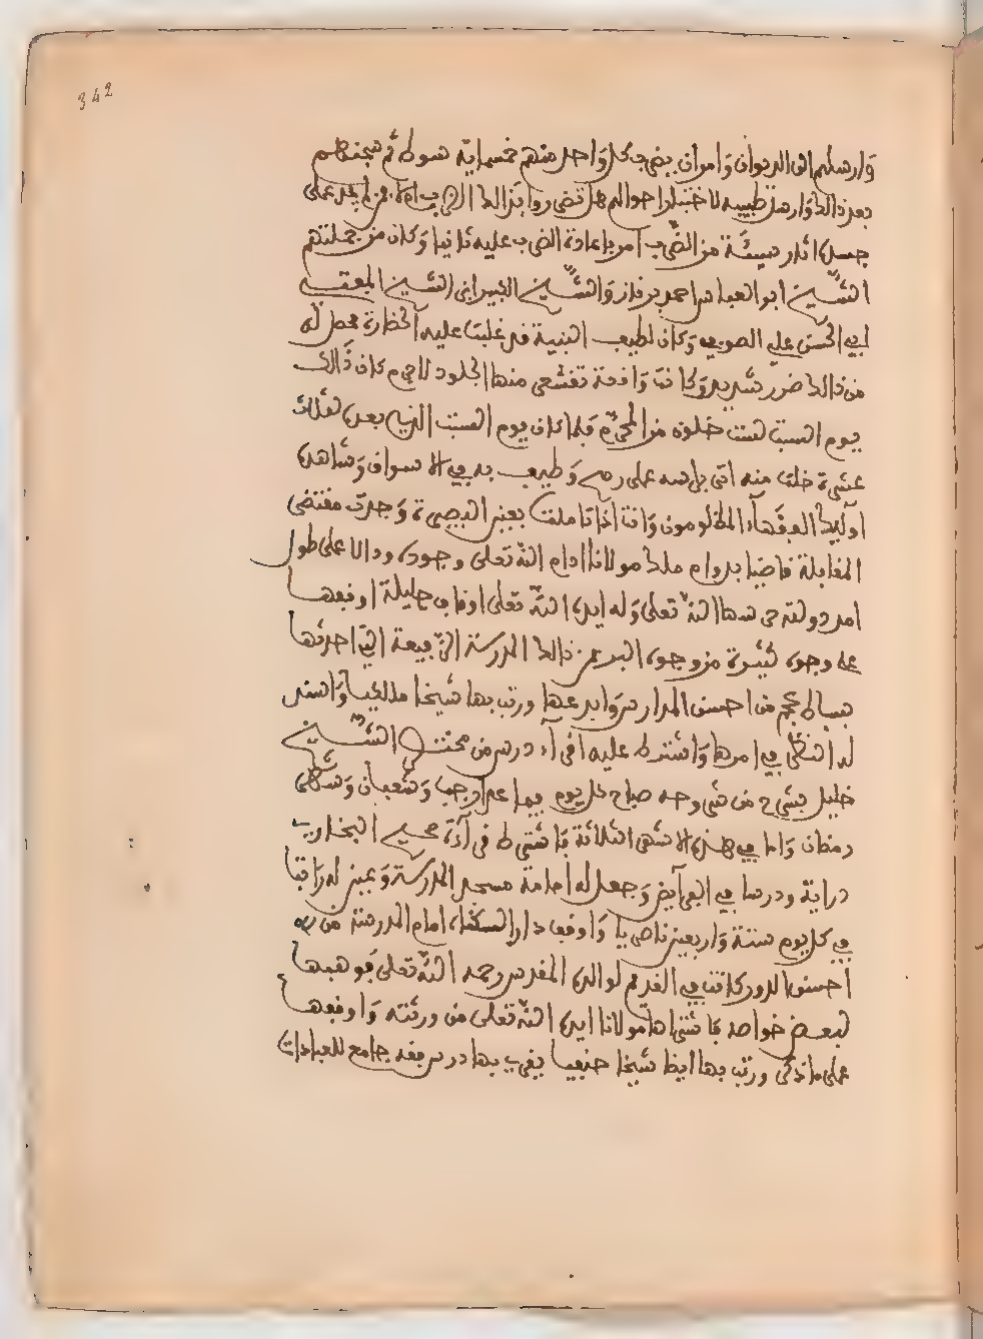 342
وارسلهم الى الديوان وامر ان يضرب كل واحد منهم خمسماية سوط ثم سجنهم
بعد ذالك وارسل طبيبه لاختبار احوالهم هل تضرروا بذالك الضرب ام لا فمن لم يجد على
جسده اثار سيئة من الضرب امر باعادة الضرب عليه ثانيا وكان من جملتهم
الشيخ ابو العباس احمد برناز والشيخ الكبير ابن الشيخ المعتقد
ابي الحسن علي الصوفي وكان لطيف البنية قد غلبت عليه الحضارة فحصل له
من ذالك ضرر شديد وكانت واقعة تقشعر منها الجلود لا جرم كان ذالك
يوم السبت لست خلون من المحرم فلما كان يوم السبت الذي بعده لثلاث
عشرة خلت منه اتى براسه على رمح وطيف به في الاسواق وشاهده
اوليك الفقهاء المظلومون وانت اذا تاملت بعين البصيرة وجدت مقتضى
المقابلة قاضيا بدوام ملك مولانا ادام الله تعلى وجوده ودالا على طول
امد دولته حرسها الله تعلى وله ايده الله تعلى اوقاف جليلة اوقفها
على وجوه كثيرة من وجوه البر فمن ذالك المدرسة الرفيعة التي احدثها
من احسن المدارس وابدعها ورتب بها شيخا مالكيا واسند
له النظر في امرها واشترط عليه اقراء درس من مختصر الشيخ
خليل بشرح من شروحه صباح كل يوم فيما عدا رجب وشعبان وشهر
رمضان واما في هذه الاشهر الثلاثة فاشترط قراءة صحيح البخاري
دراية ودرسا في الفرائض وجعل له امامة مسجد المدرسة وعين له راتبا
في كل يوم ستة واربعين ناصريا واوقف دارا لسكناء امام المدرسة من
احسن الدور كانت في القديم لوالده المقدس رحمه الله تعلى فوهبها
لبعض خواصه فاشتراها مولانا ايده الله تعلى من ورثته واوقفها
على ما ذكر ورتب بها ايضا شيخا حنفيا يقرئ بها درس فقه جامع للعبادات